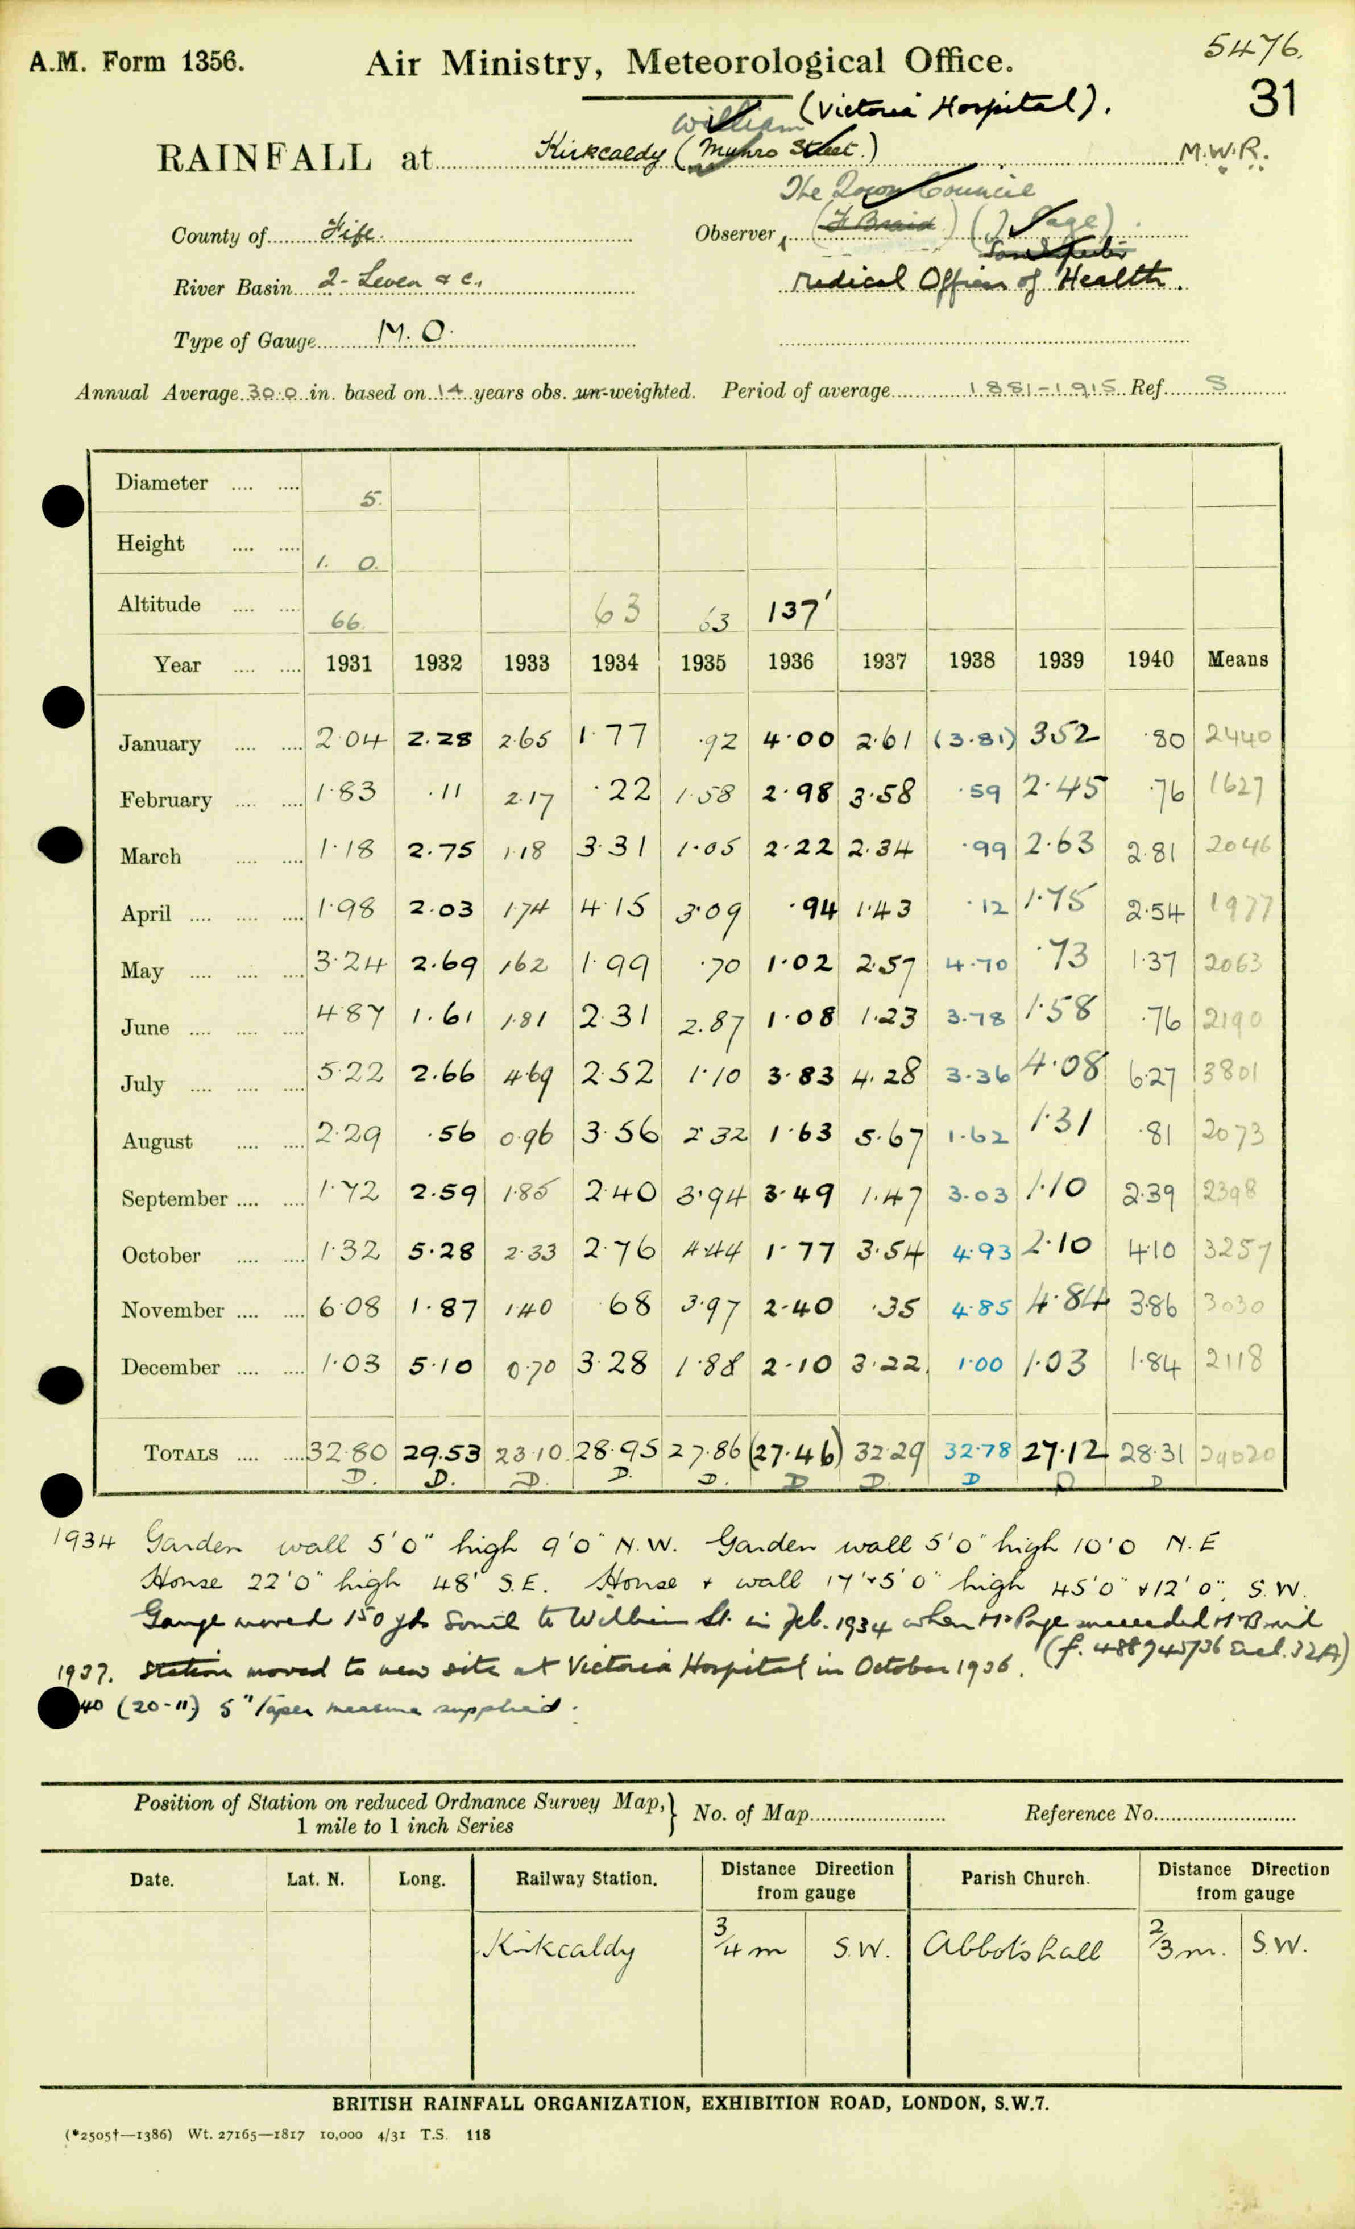 A.M. Form 1356.
Air Ministry, Meteorological Office.
5476.
31
William (Victoria Hospital).
RAINFALL at Kirkcaldy (Munro Street.) M.W.R.
The Town Council
County of Fife. Observer, (F Braid) (J Page)
River Basin 2- Leven & c., Medical Officer of Health.
Type of Gauge M.O.
Annual Average 30.0 in. based on 14 years obs. un-weighted. Period of average 1881-1915 Ref. S
Diameter .... .... 5.
Height .... .... 1. 0.
Altitude .... .... 66. 63 63 137'
Year .... .... 1931 1932 1933 1934 1935 1936 1937 1938 1939 1940 Means
January .... .... 2.04 2.28 2.65 1.77 .92 4.00 2.61 (3.81) 3.52 .80 2440
February .... .... 1.83 .11 2.17 .22 1.58 2.98 3.58 .59 2.45 .76 1627
March .... .... 1.18 2.75 1.18 3.31 1.05 2.22 2.34 .99 2.63 2.81 2046
April .... .... .... 1.98 2.03 1.74 4.15 3.09 .94 1.43 .12 1.75 2.54 1977
May .... .... .... 3.24 2.69 1.62 1.99 .70 1.02 2.57 4.70 .73 1.37 2063
June .... .... .... 4.87 1.61 1.81 2.31 2.87 1.08 1.23 3.78 1.58 .76 2190
July .... .... .... 5.22 2.66 4.69 2.52 1.10 3.83 4.28 3.36 4.08 6.27 3801
August .... .... 2.29 .56 0.96 3.56 2.32 1.63 5.67 1.62 1.31 .81 2073
September .... .... 1.72 2.59 1.85 2.40 3.94 3.49 1.47 3.03 1.10 2.39 2398
October .... .... 1.32 5.28 2.33 2.76 4.44 1.77 3.54 4.93 2.10 4.10 3257
November .... .... 6.08 1.87 1.40 .68 3.97 2.40 .35 4.85 4.84 3.86 3030
December .... .... 1.03 5.10 0.70 3.28 1.88 2.10 3.22 1.00 1.03 1.84 2118
TOTALS .... .... 32.80 29.53 23.10 28.95 27.86 (27.46) 32.29 32.78 27.12 28.31 29020
D. D. D. D. D. D D. D D D
1934 Garden wall 5'0" high 9'0" N.W. Garden wall 5'0" high 10'0 N.E
House 22'0" high 48' S.E. House + wall 17'+5'0" high 45'0" & 12'0", S.W.
Gauge moved 150 yds South to William St. in Feb. 1934 when Mr Page succeeded Mr Braid
(f. 488745/36 Encl. 32A)
1937. Station moved to new site at Victoria Hospital in October 1936.
40 (20-11) 5" Taper measure supplied.
Position of Station on reduced Ordnance Survey Map, 1 mile to 1 inch Series } No. of Map Reference No.
Date. Lat. N. Long. Railway Station. Distance Direction from gauge Parish Church. Distance Direction from gauge
Kirkcaldy 3/4 m S.W. Abbotshall 2/3 m. S.W.
BRITISH RAINFALL ORGANIZATION, EXHIBITION ROAD, LONDON, S.W.7.
(*2505†—1386) Wt. 27165—1817 10,000 4/31 T.S. 118